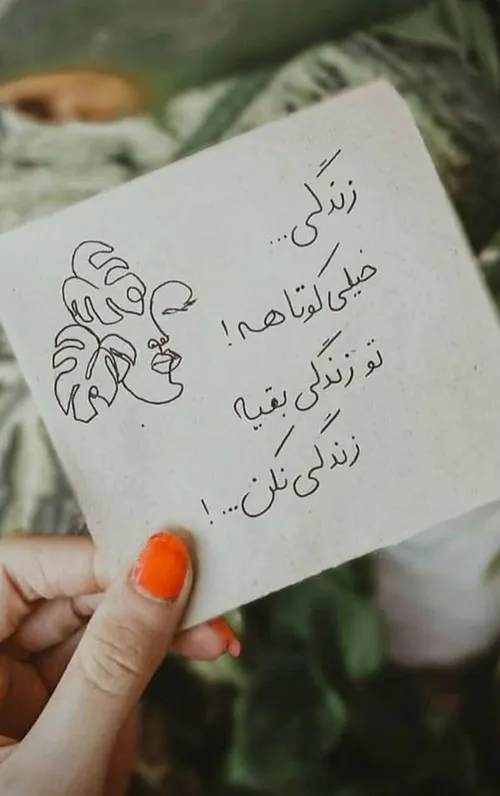 زندگی...
خیلی کوتاهه!
تو زندگی بقیه
زندگی نکن...!